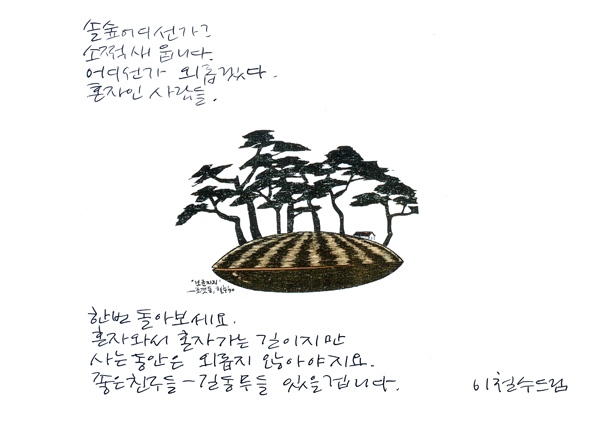 솔숲 어디선가는
소쩍새 웁니다.
어디선가 외롭겠다.
혼자인 사람들.
한번 돌아보세요.
혼자와서 혼자가는 길이지만
사는동안은 외롭지 않아야지요.
좋은친구들-길동무들 있을겁니다.
이철수드림